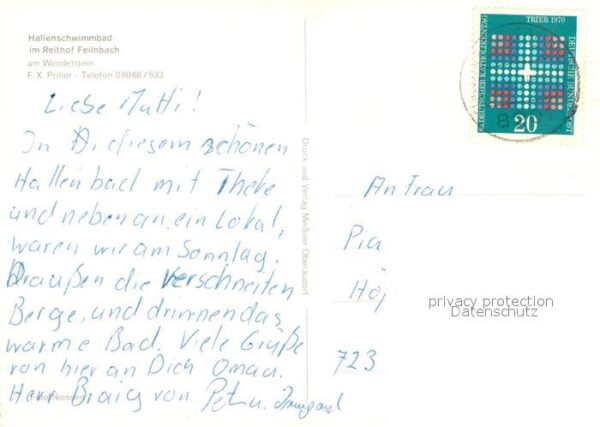 Hallenschwimmbad
im Reithof Feilnbach
am Wendelstein
F. X. Priller - Telefon 08066/533
Liebe Mutti!
In D. diesem schönen
Hallenbad mit Theke
und nebenan ein Lokal,
waren wir am Sonntag.
Draußen die verschneiten
Berge, und drinnen das
warme Bad. Viele Grüße
von hier an Dich Oma u.
Herr Braig von Pet u. Irmgard
Foto Niessen
Druck und Verlag Meißner Oberaudorf
83. DEUTSCHER KATHOLIKENTAG
TRIER 1970
DEUTSCHE BUNDESPOST
20
An Frau
Pia
Höj
723
privacy protection
Datenschutz